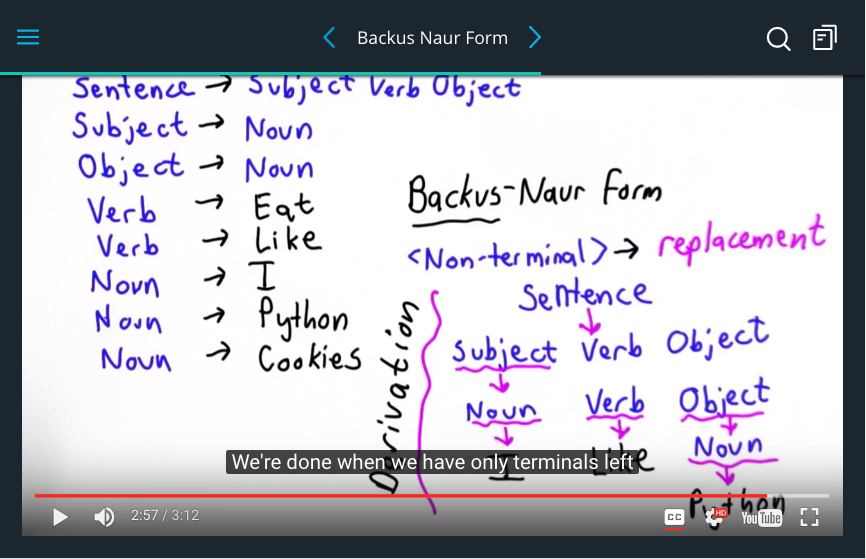 Backus Naur Form
Sentence → Subject Verb Object
Subject → Noun
Object → Noun
Verb → Eat
Verb → Like
Noun → I
Noun → Python
Noun → Cookies
Backus-Naur Form
<Non-terminal> → replacement
Derivation
Sentence
Subject Verb Object
Noun Verb Object
I Like Noun
Python
We're done when we have only terminals left
2:57 / 3:12
CC
HD
YouTube